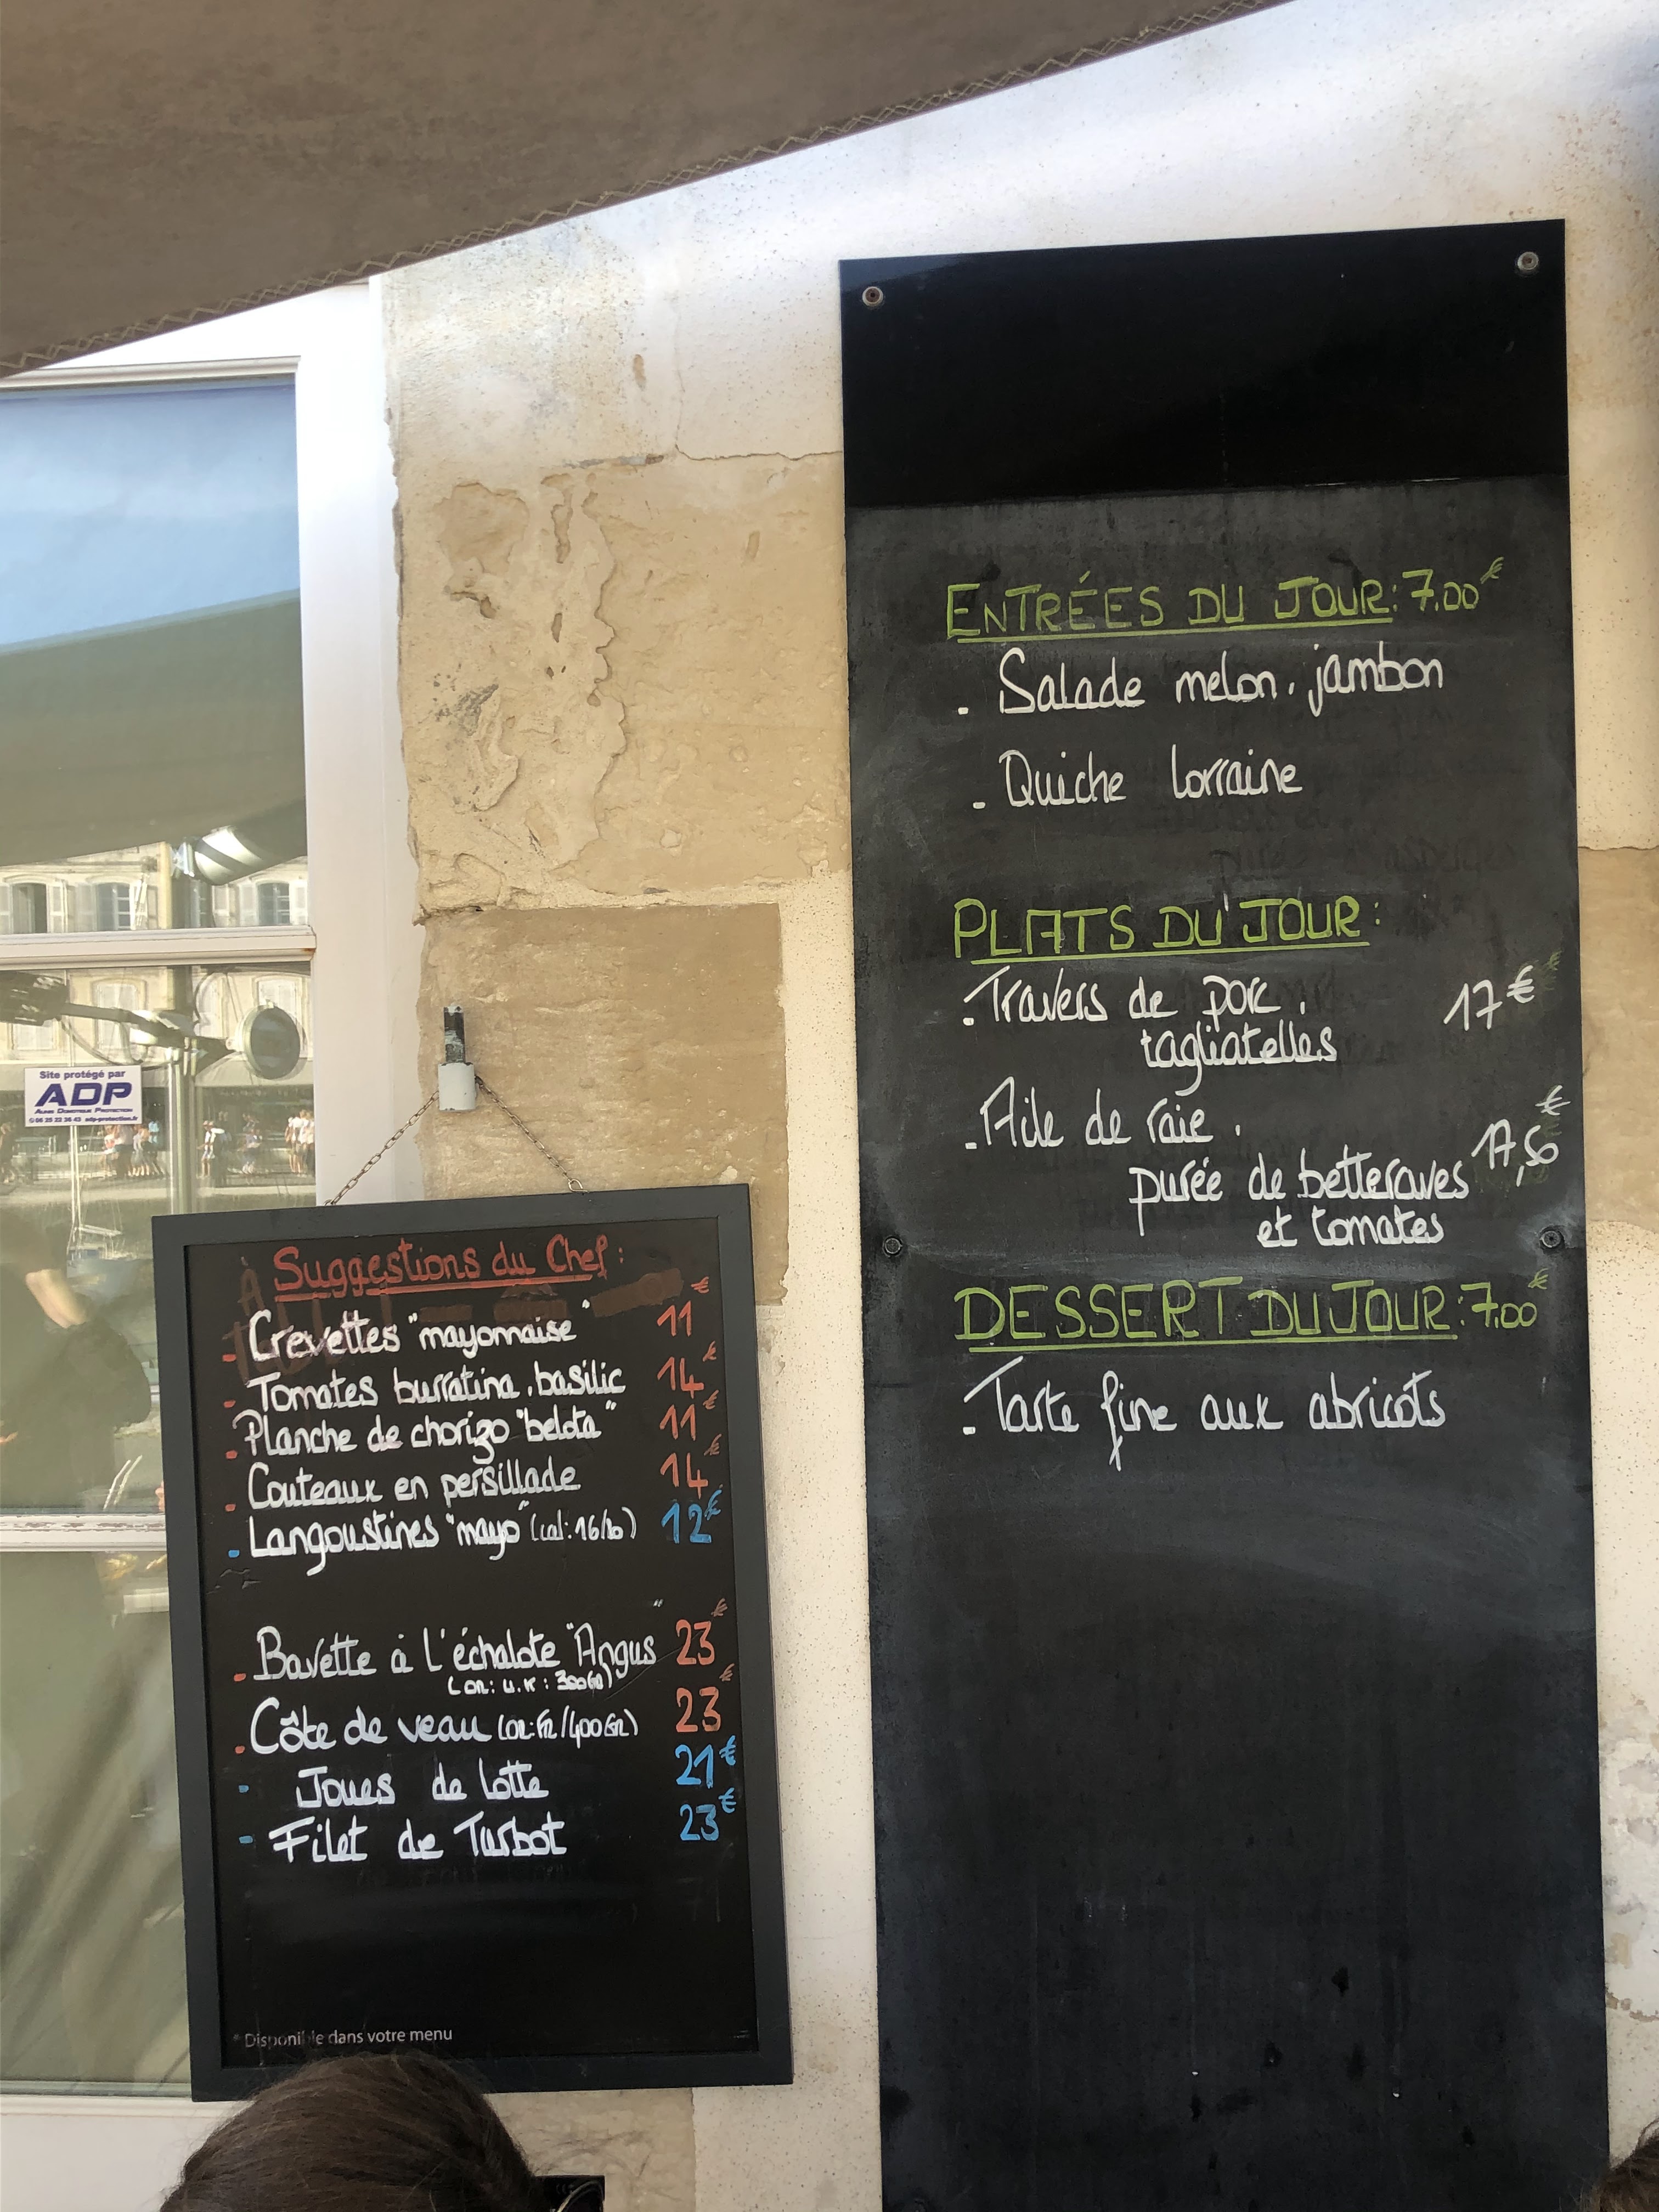 Site protégé par
ADP
ALARME DOMOTIQUE PROTECTION
06 25 22 36 43 adp-protection.fr
Suggestions du Chef :
- Crevettes "mayonnaise" 11€
- Tomates burratina, basilic 14€
- Planche de chorizo "belota" 11€
- Couteaux en persillade 14€
- Langoustines "mayo" (cal: 16/20) 12€
- Bavette à l'échalote "Angus" 23€
(OR: U.K : 300GR)
- Côte de veau (OR: FR/400GR) 23€
- Joues de lotte 21€
- Filet de Turbot 23€
* Disponible dans votre menu
ENTRÉES DU JOUR: 7.00€
. Salade melon, jambon
. Quiche lorraine
PLATS DU JOUR:
. Travers de porc, 17€
tagliatelles
. Aile de raie,
purée de betteraves 17,50€
et tomates
DESSERT DU JOUR: 7.00€
. Tarte fine aux abricots